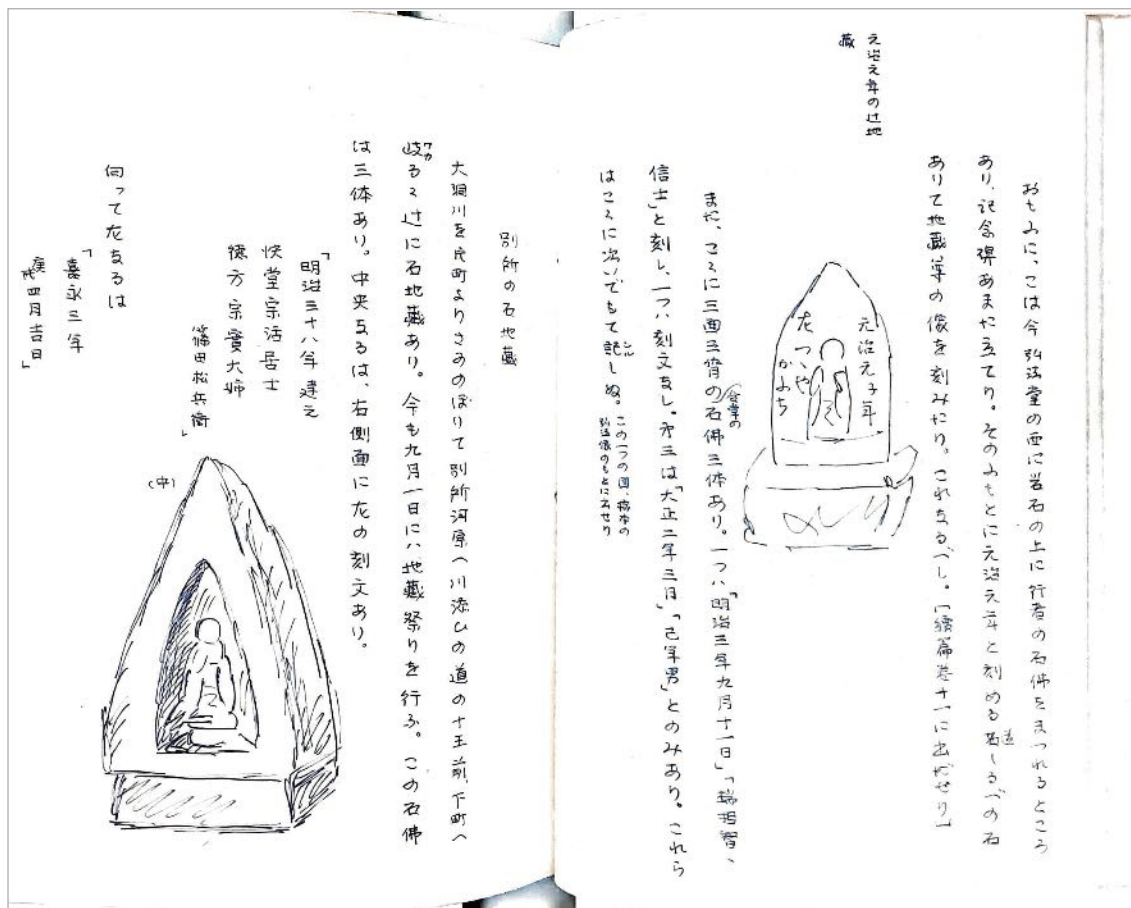 元治元年の辻地
蔵
おもふに、こは今弘法堂の西に岩石の上に行者の石佛をまつれるところ
あり、記念碑あまた立てり。そのふもとに元治元年と刻める道しるべの石
ありて地蔵尊の像を刻みたり。これなるべし。(續篇巻十一に出だせり)
元治元子年
左つゝや
かみち
また、こゝに三面三臂の石佛三体あり。一つハ「明治三年九月十一日」「
合掌の
信士」と刻し、一つハ刻文なし。第三は「大正二年三月」「己年男」とのみあり。これら
はこゝに次いでもて記しぬ。この一つの図、
シル
弘法像のもとに出せり
別所の石地蔵
大洞川を氏町よりさかのぼりて別所河原へ川添ひの道の十王前、下町へ
岐るゝ辻に石地蔵あり。今も九月一日にハ地蔵祭りを行ふ。この石佛
ワカ
は三体あり。中央なるは、右側面に左の刻文あり。
「明治三十八年建之
快堂宗活居士
徳方宗寶大姉
篠田松兵衛」
(中)
向って左なるは
「嘉永三年
庚戌四月吉日」